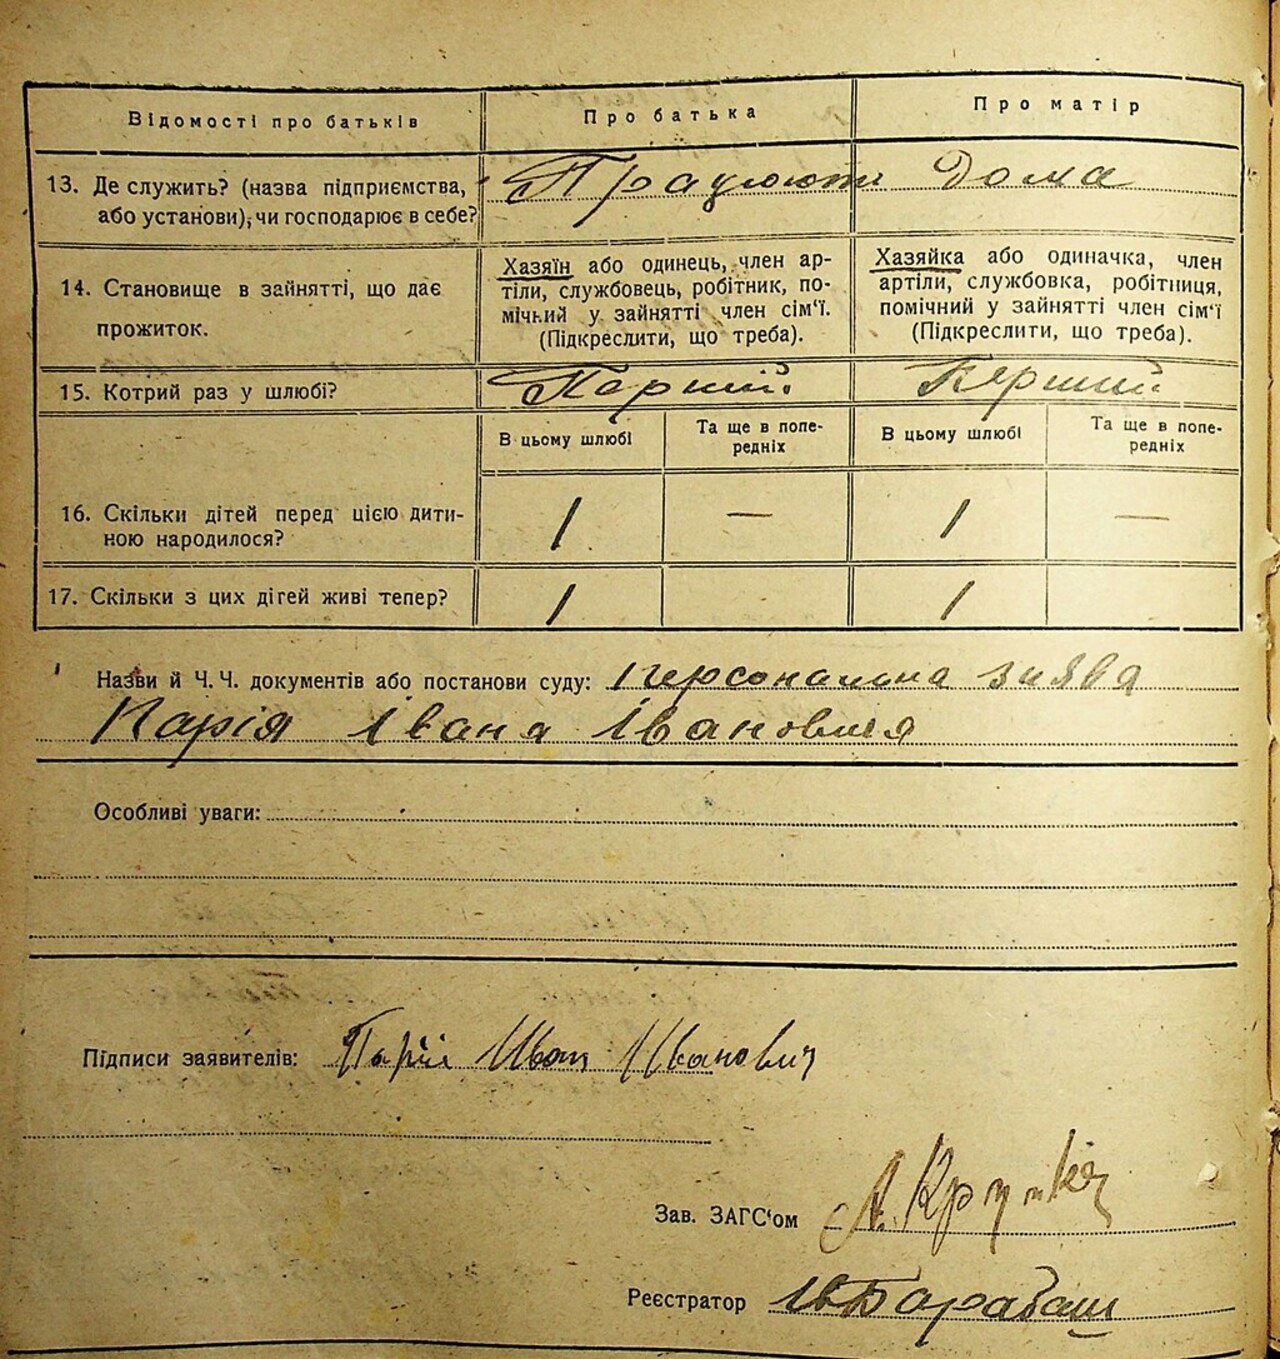 Відомості про батьків Про батька Про матір
13. Де служить? (назва підприємства, або установи), чи господарює в себе? Працюють Дома
14. Становище в зайнятті, що дає прожиток.
Хазяїн або одинець, член ар-
тілі, службовець, робітник, по-
мічний у зайнятті член сім'ї.
(Підкреслити, що треба).
Хазяйка або одиначка, член
артілі, службовка, робітниця,
помічний у зайнятті член сім'ї
(Підкреслити, що треба).
15. Котрий раз у шлюбі? Перший Перший
В цьому шлюбі Та ще в попе-
редніх В цьому шлюбі Та ще в попе-
редніх
16. Скільки дітей перед цією дити-
ною народилося? 1 — 1 —
17. Скільки з цих дітей живі тепер? 1 1
Назви й Ч. Ч. документів або постанови суду: персональна заява
Парія Івана Івановича
Особливі уваги:
Підписи заявителів: Парій Иван Иванович
Зав. ЗАГС'ом А. Крупка
Реєстратор Ів Барабаш